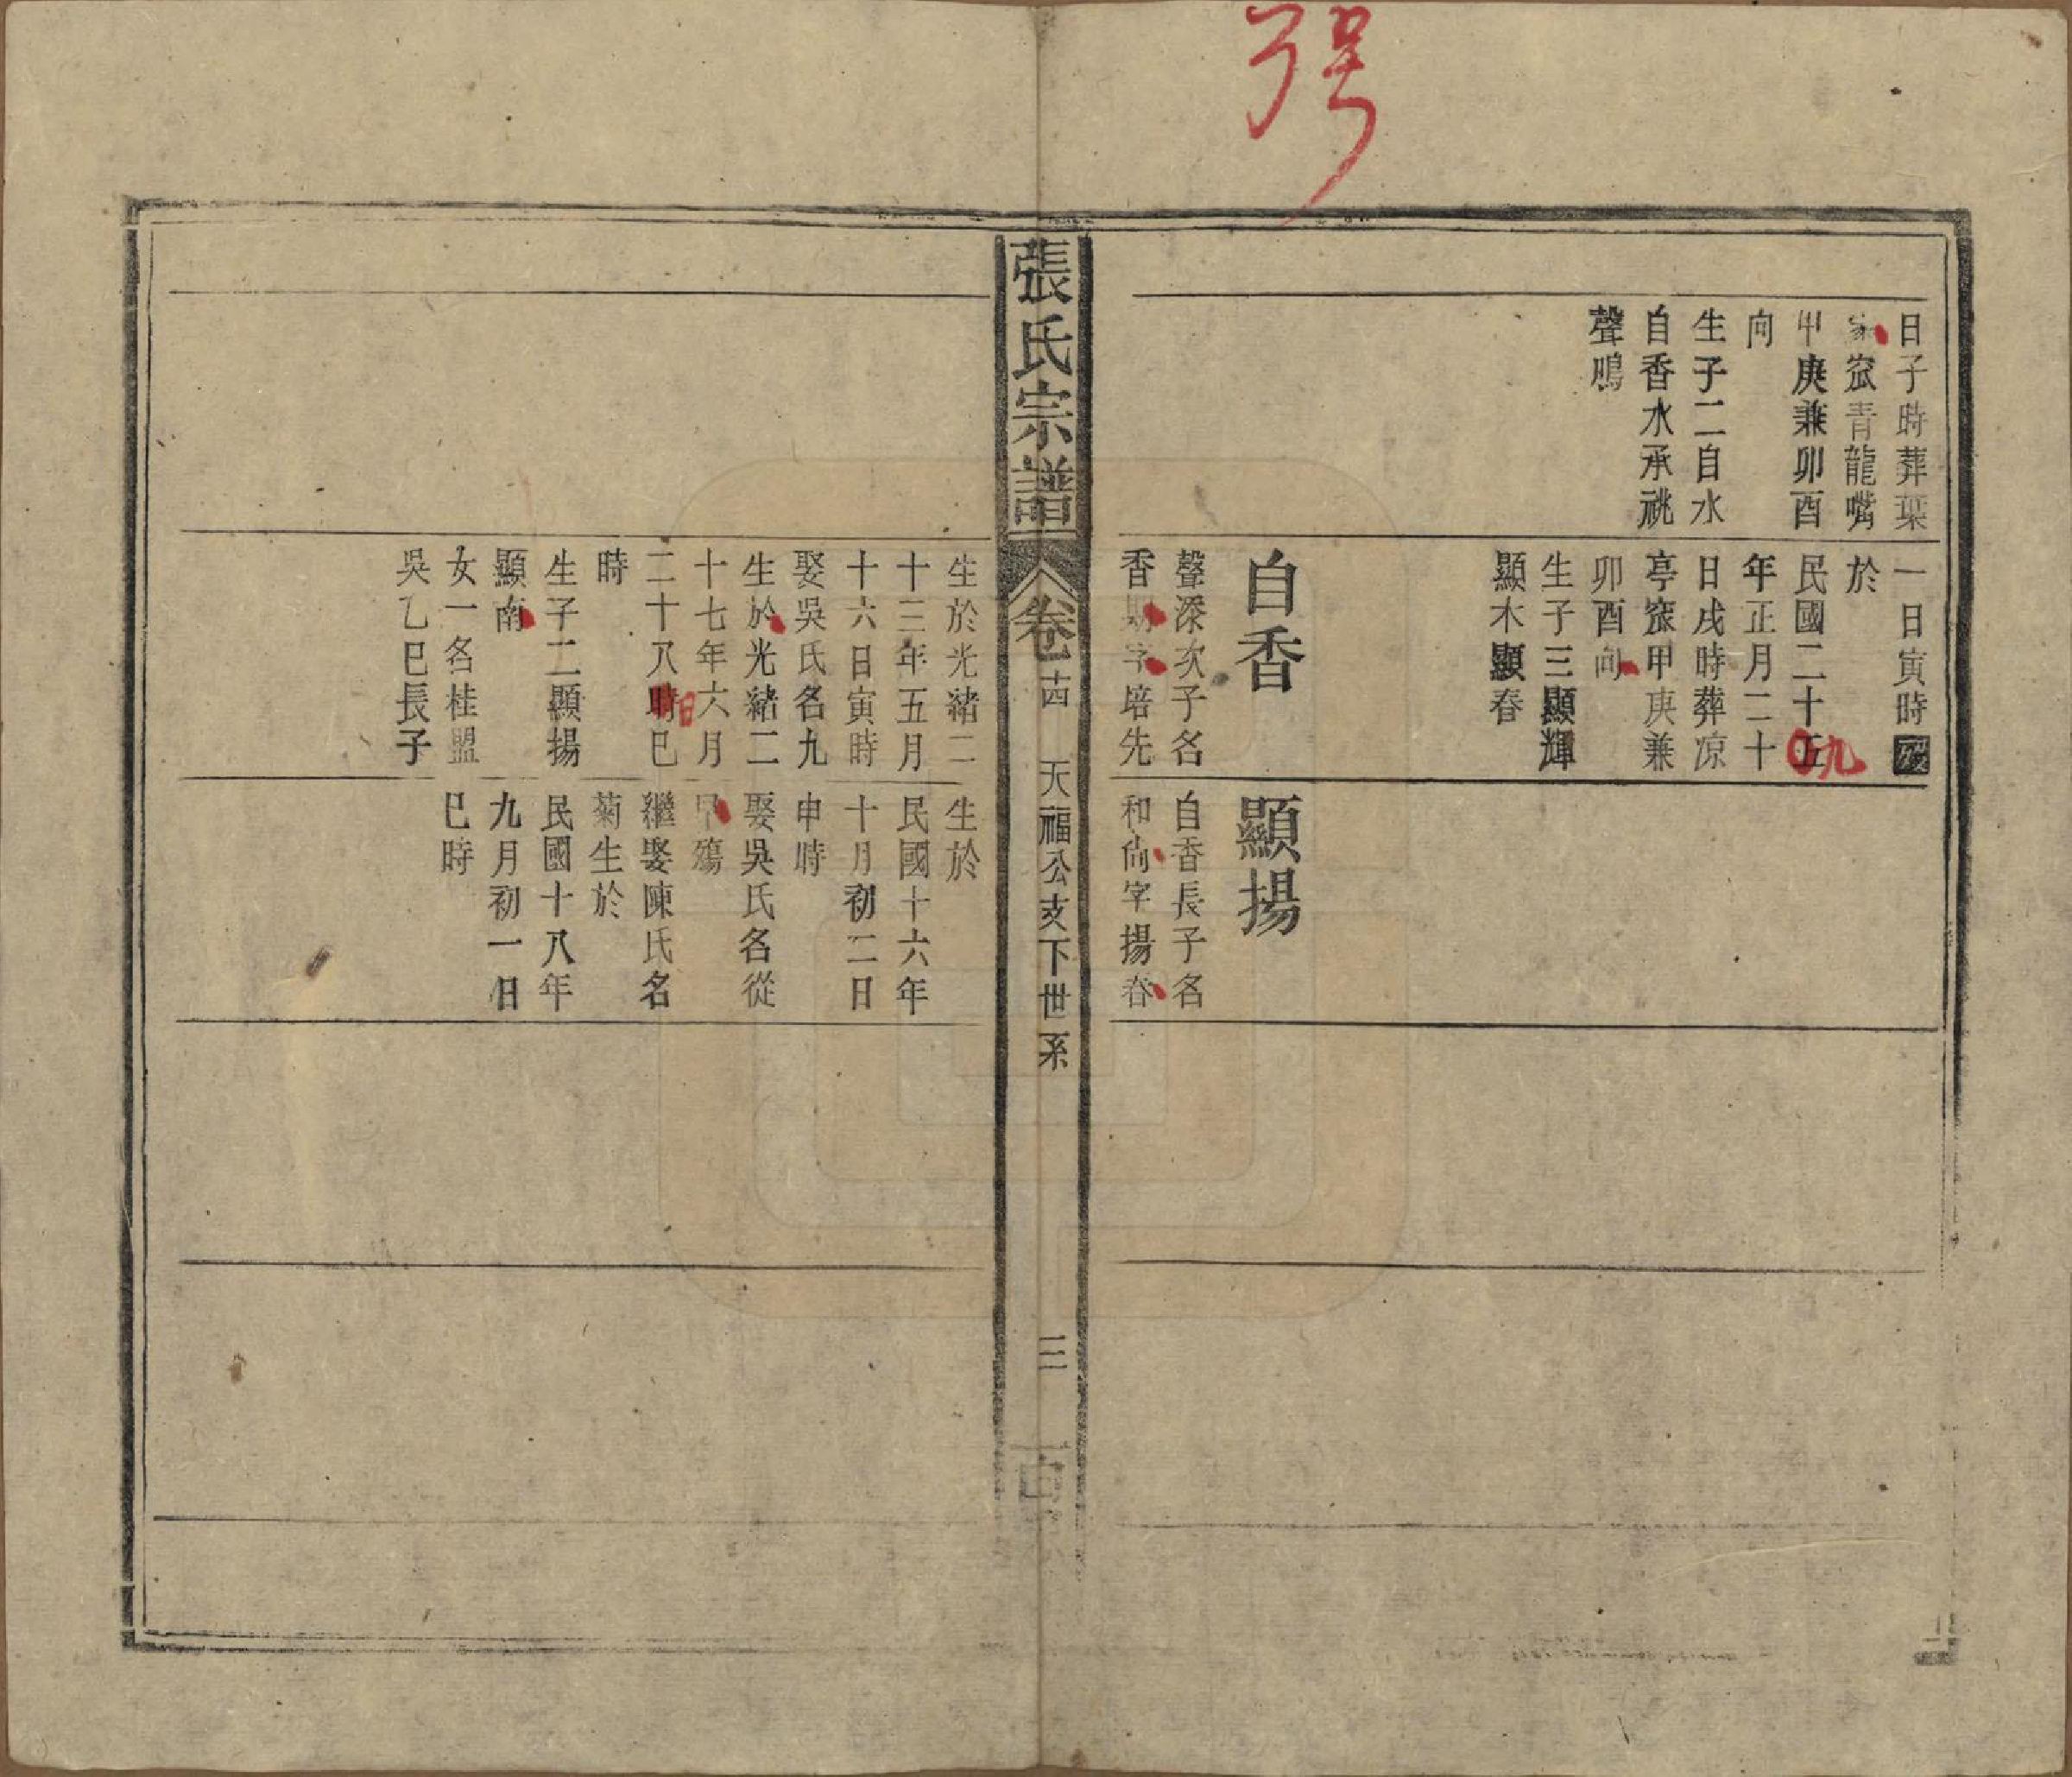 日子時葬葉
家窊青龍嘴
甲庚兼卯酉
向
生子二自水
自香水承祧
聲鳴
一日寅時歿
於
民國二十五九
年正月二十
日戌時葬凉
亭窊甲庚兼
卯酉向
生子三顯輝
顯木顯春
自香
聲深次子名
香則字培先
顯揚
自香長子名
和尚字揚春
張氏宗譜
卷十四
天福公支下世系
三
生於光緒二
十三年五月
十六日寅時
娶吳氏名九
生於光緒二
十七年六月
二十八時日巳
時
生子二顯揚
顯南
女一名桂盟
吳乙巳長子
生於
民國十六年
十月初二日
申時
娶吳氏名從
早殤
繼娶陳氏名
菊生於
民國十八年
九月初一日
巳時